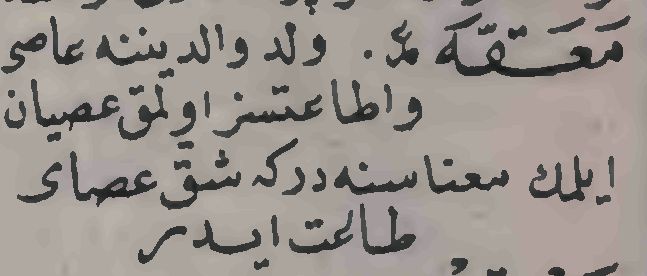 مَعَقّة مر . ولد والديننه عاصى
واطاعتسز اولمق عصيان
ايلمك معناسنه دركه شق عصاى
طاعت ايدر